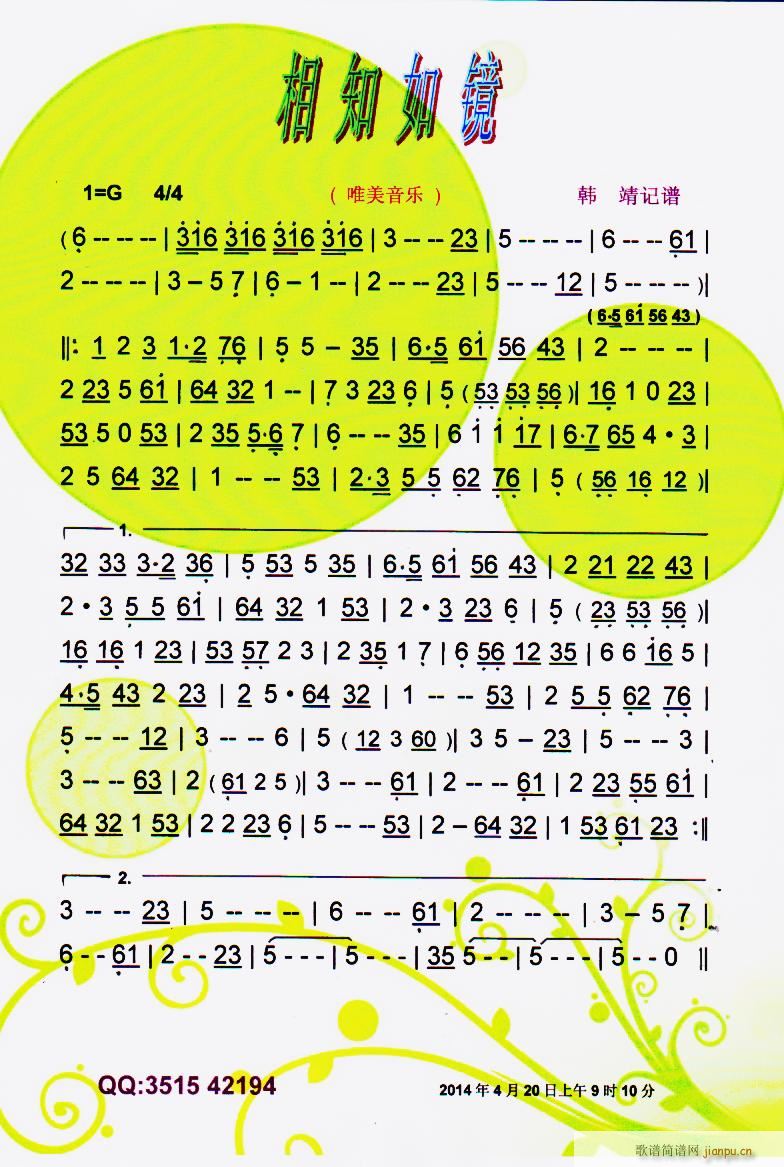 相知如镜
1=G 4/4 （ 唯美音乐 ） 韩 靖记谱
( 6 -- -- -- | 316 316 316 316 | 3 -- -- 23 | 5 -- -- -- | 6 -- -- 61 |
2 -- -- -- | 3 – 5 7 | 6 – 1 -- | 2 -- -- 23 | 5 -- -- 12 | 5 -- -- -- )|
( 6·5 61 56 43 )
||: 1 2 3 1·2 76 | 5 5 – 35 | 6·5 61 56 43 | 2 -- -- -- |
2 23 5 61 | 64 32 1 -- | 7 3 23 6 | 5 ( 53 53 56 )| 16 1 0 23 |
53 5 0 53 | 2 35 5·6 7 | 6 -- -- 35 | 6 1 1 17 | 6·7 65 4 · 3 |
2 5 64 32 | 1 -- -- 53 | 2·3 5 5 62 76 | 5 ( 56 16 12 )|
1.
32 33 3·2 36 | 5 53 5 35 | 6·5 61 56 43 | 2 21 22 43 |
2 · 3 5 5 61 | 64 32 1 53 | 2 · 3 23 6 | 5 ( 23 53 56 )|
16 16 1 23 | 53 57 2 3 | 2 35 1 7 | 6 56 12 35 | 6 6 16 5 |
4·5 43 2 23 | 2 5 · 64 32 | 1 -- -- 53 | 2 5 5 62 76 |
5 -- -- 12 | 3 -- -- 6 | 5 ( 12 3 60 )| 3 5 – 23 | 5 -- -- 3 |
3 -- -- 63 | 2 ( 61 2 5 )| 3 -- -- 61 | 2 -- -- 61 | 2 23 55 61 |
64 32 1 53 | 2 2 23 6 | 5 -- -- 53 | 2 – 64 32 | 1 53 61 23 :||
2.
3 -- -- 23 | 5 -- -- -- | 6 -- -- 61 | 2 -- -- -- | 3 – 5 7 |
6 - - 61 | 2 - - 23 | 5 - - - | 5 - - - | 35 5 - - | 5 - - - | 5 - - 0 ||
QQ:3515 42194 2014 年 4 月 20 日上午 9 时 10 分
歌谱简谱网 jianpu.cn